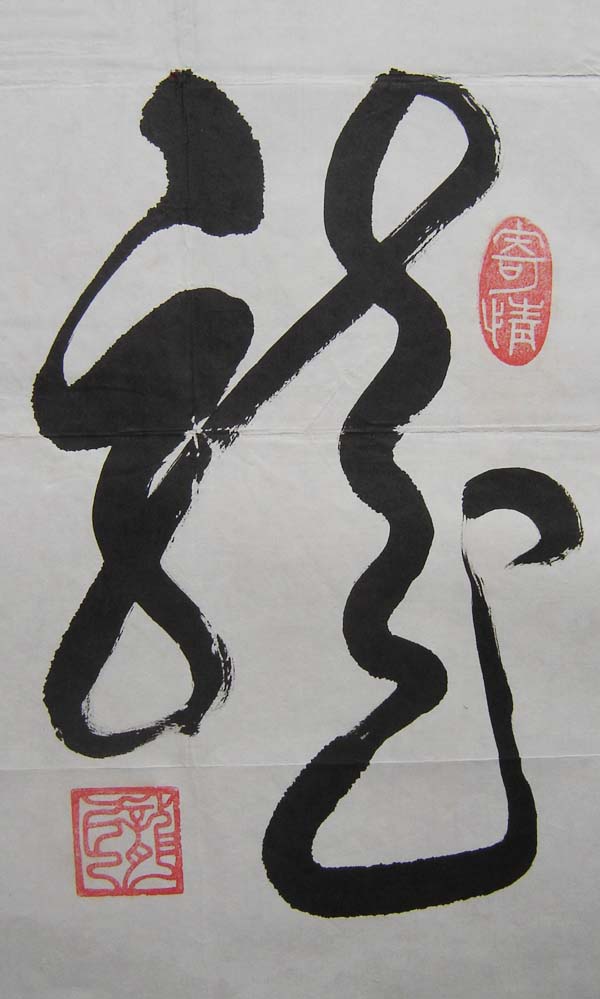 龍
寄情